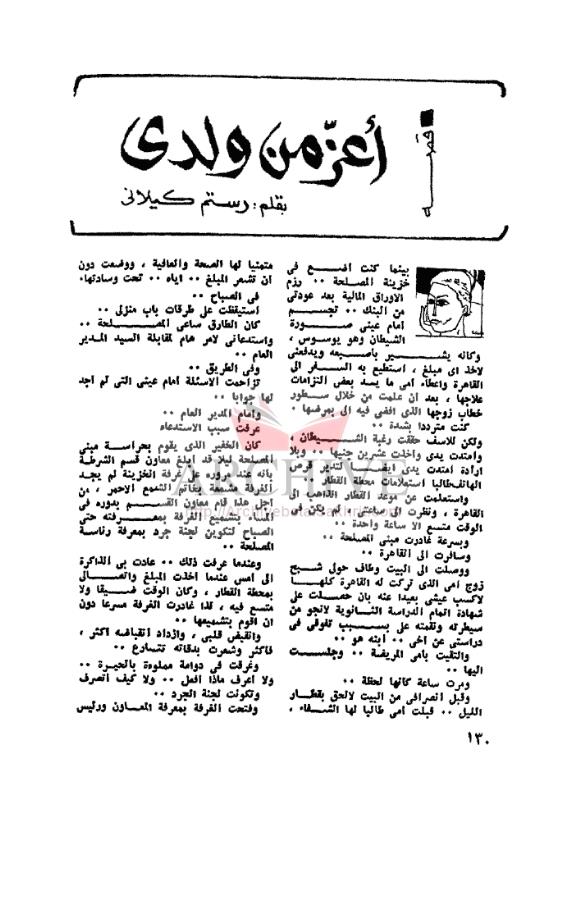 قصة
أعزّ من ولدى
بقلم : رستم كيلانى
بينما كنت اضع فى
خزينة المصلحة .. رزم
الاوراق المالية بعد عودتى
من البنك .. تجسم
امام عينى صورة
الشيطان وهو يوسوس ،
وكأنه يشير بأصبعه ويدفعنى
لاخذ اى مبلغ ، استطيع به السفر الى
القاهرة واعطاء امى ما يسد بعض التزامات
علاجها ، بعد ان علمت من خلال سطور
خطاب زوجها الذى افضى فيه الى بمرضها .
كنت مترددا بشدة ..
ولكن للاسف حققت رغبة الشيطان ،
وامتدت يدى واخذت عشرين جنيها .. وبلا
ارادة امتدت يدى ايضا تدير قرص
الهاتف طالبا استعلامات محطة القطار
واستعلمت عن موعد القطار الذاهب الى
القاهرة ، ونظرت الى ساعتى ، لم يكن فى
الوقت متسع الا ساعة واحدة ..
وبسرعة غادرت مبنى المصلحة ..
وسافرت الى القاهرة ..
ووصلت الى البيت وطاف حولى شبح
زوج امى الذى تركت له القاهرة كلها
لاكسب عيشى بعيدا عنه بان حصلت على
شهادة اتمام الدراسة الثانوية لانجو من
سيطرته ونقمته على بسبب تفوقى فى
دراستى عن اخى .. ابنه هو ..
والتقيت بامى المريضة .. وجلست
اليها ..
ومرت ساعة كانها لحظة ..
وقبل انصرافى من البيت لالحق بقطار
الليل .. قبلت امى طالبا لها الشفاء ،
متمنيا لها الصحة والعافية ، ووضعت دون
ان تشعر المبلغ .. اياه .. تحت وسادتها.
فى الصباح ..
استيقظت على طرقات باب منزلى ..
كان الطارق ساعى المصلحة ..
واستدعانى لامر هام لمقابلة السيد المدير
العام ..
وفى الطريق ..
تزاحمت الاسئلة امام عينى التى لم اجد
لها جوابا ..
وامام المدير العام ..
عرفت سبب الاستدعاء
كان الخفير الذى يقوم بحراسة مبنى
المصلحة ليلا قد ابلغ معاون قسم الشرطة
بانه عند مروره على غرفة الخزينة لم يجد
الغرفة مشمعة بخاتم الشمع الاحمر ، من
اجل هذا قام معاون القسم بدوره فى
المساء بتشميع الغرفة بمعرفته حتى
الصباح لتكوين لجنة جرد بمعرفة رئاسة
المصلحة ..
وعندما عرفت ذلك .. عادت بى الذاكرة
الى امس عندما اخذت المبلغ واتصالى
بمحطة القطار ، وكان الوقت ضيقا ولا
متسع فيه ، لذا غادرت الغرفة مسرعا دون
ان اقوم بتشميعها ..
وانقبض قلبى ، وازداد انقباضه اكثر ،
فاكثر وشعرت بدقاته تتسارع ..
وغرقت فى دوامة مملوءة بالحيرة ..
ولا اعرف ماذا افعل .. ولا كيف اتصرف
وتكونت لجنة الجرد ..
وفتحت الغرفة بمعرفة المعاون ورئيس
١٣٠
ARCHIVE